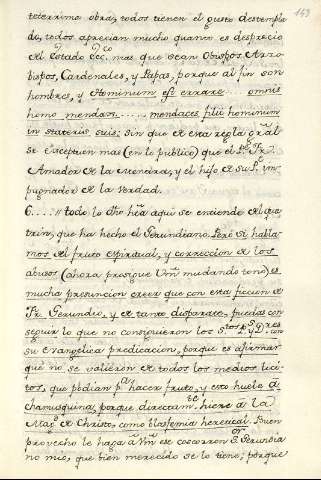 143
teterrima obra, todos tienen el gusto destempla-
do, todos aprecian mucho quanto es desprecio
del Estado Ecc.co mas que sean Obispos, Arzo-
bispos, Cardenales, y Papas, porque al fin son
hombres, y Hominum est errare.... omnis
homo mendax..... mendaces filii hominum
in stateris suis: sin que de esta regla gral
se exceptuen mas (en lo publico) que el Pe. Fr.
Amador de la Mentira, y el hijo de su Pe. im-
pugnador de la verdad.
6....// todo lo dho hta aqui se entiende del qua-
trin, que ha hecho el Gerundiano. Pero si habla-
mos del fruto espiritual, y correccion de los
abusos (ahora prosigue Vm mudando tono) es
mucha presuncion creer que con esta ficcion de
Fr. Gerundio, y de tanto disparate, puedas con-
seguir lo que no consiguieron los S.tos P.s y D.res con
su evangelica predicacion, porque es afirmar
que no se valieron de todos los medios lici-
tos, que podian pa. hacer fruto, y esto huele a
chamusquina, porque directamte. hiere a la
Magd. de Christo, como blasfemia heretical. Buen
provecho le haga a Vm ese cocorron Fr. Gerundio
no mio, que bien merecido se lo tiene, porque